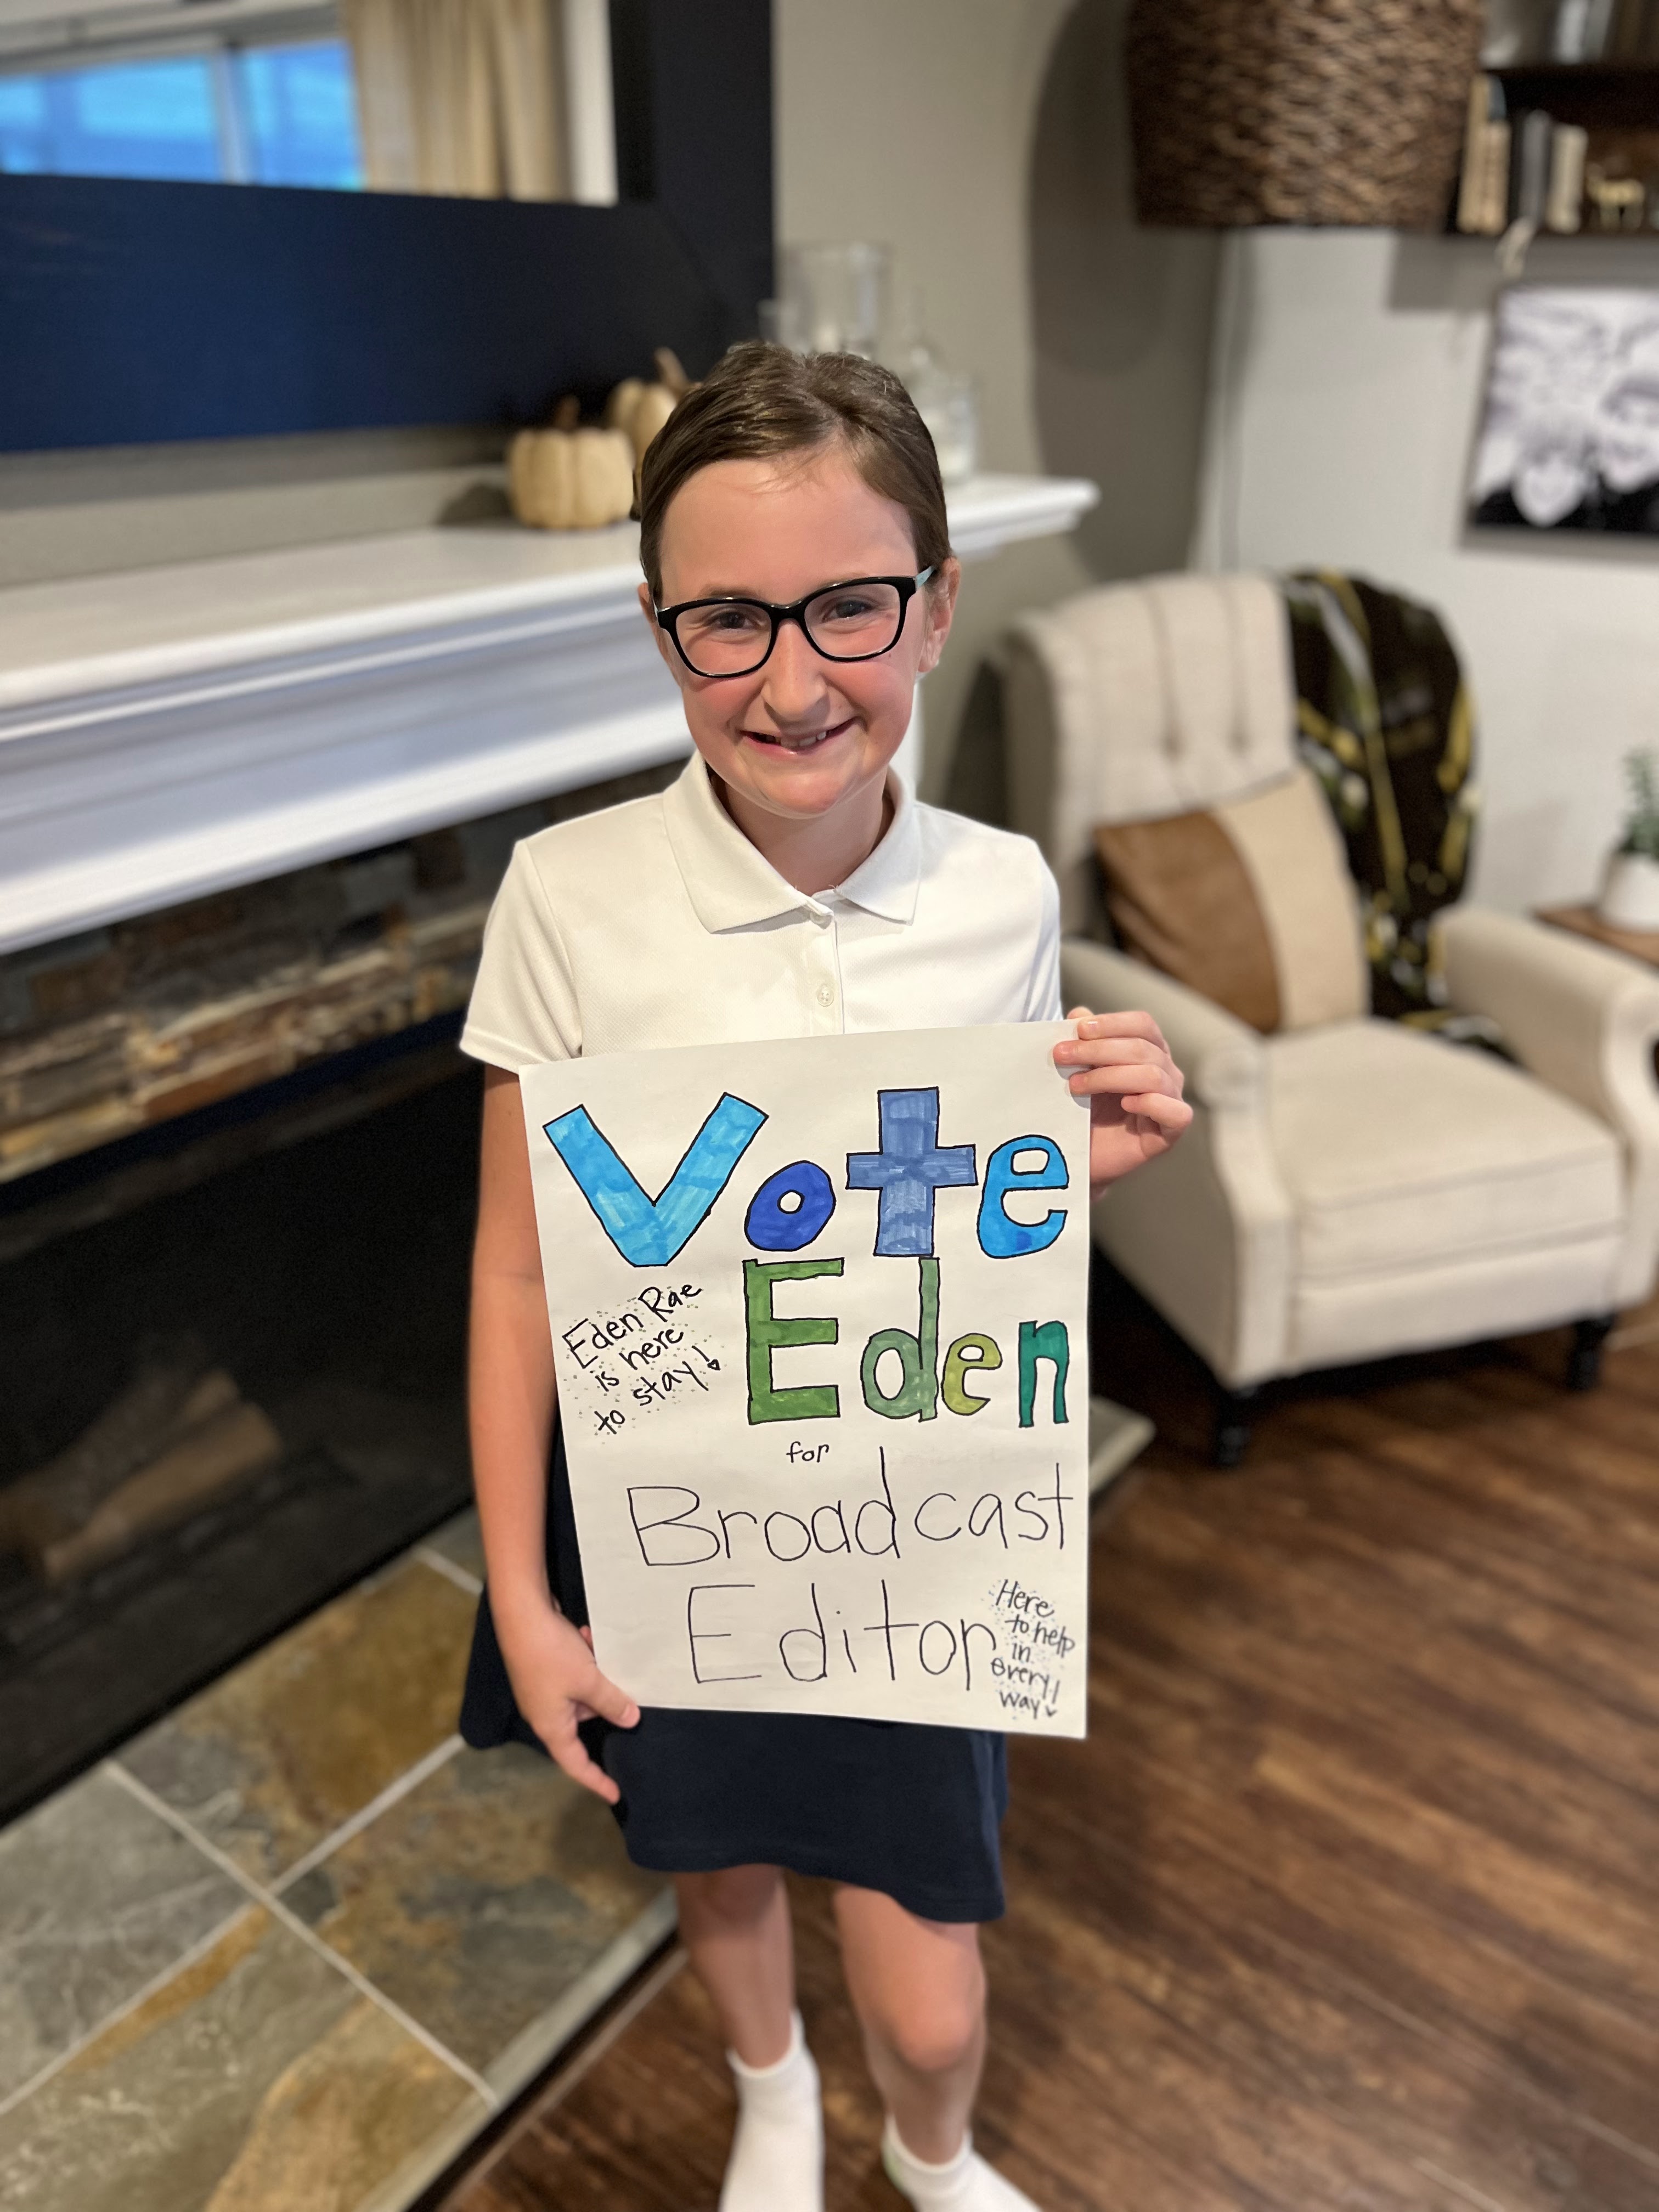 Vote
Eden
Eden Rae
is here
to stay!
for
Broadcast
Editor
Here
to help
in
every
way!